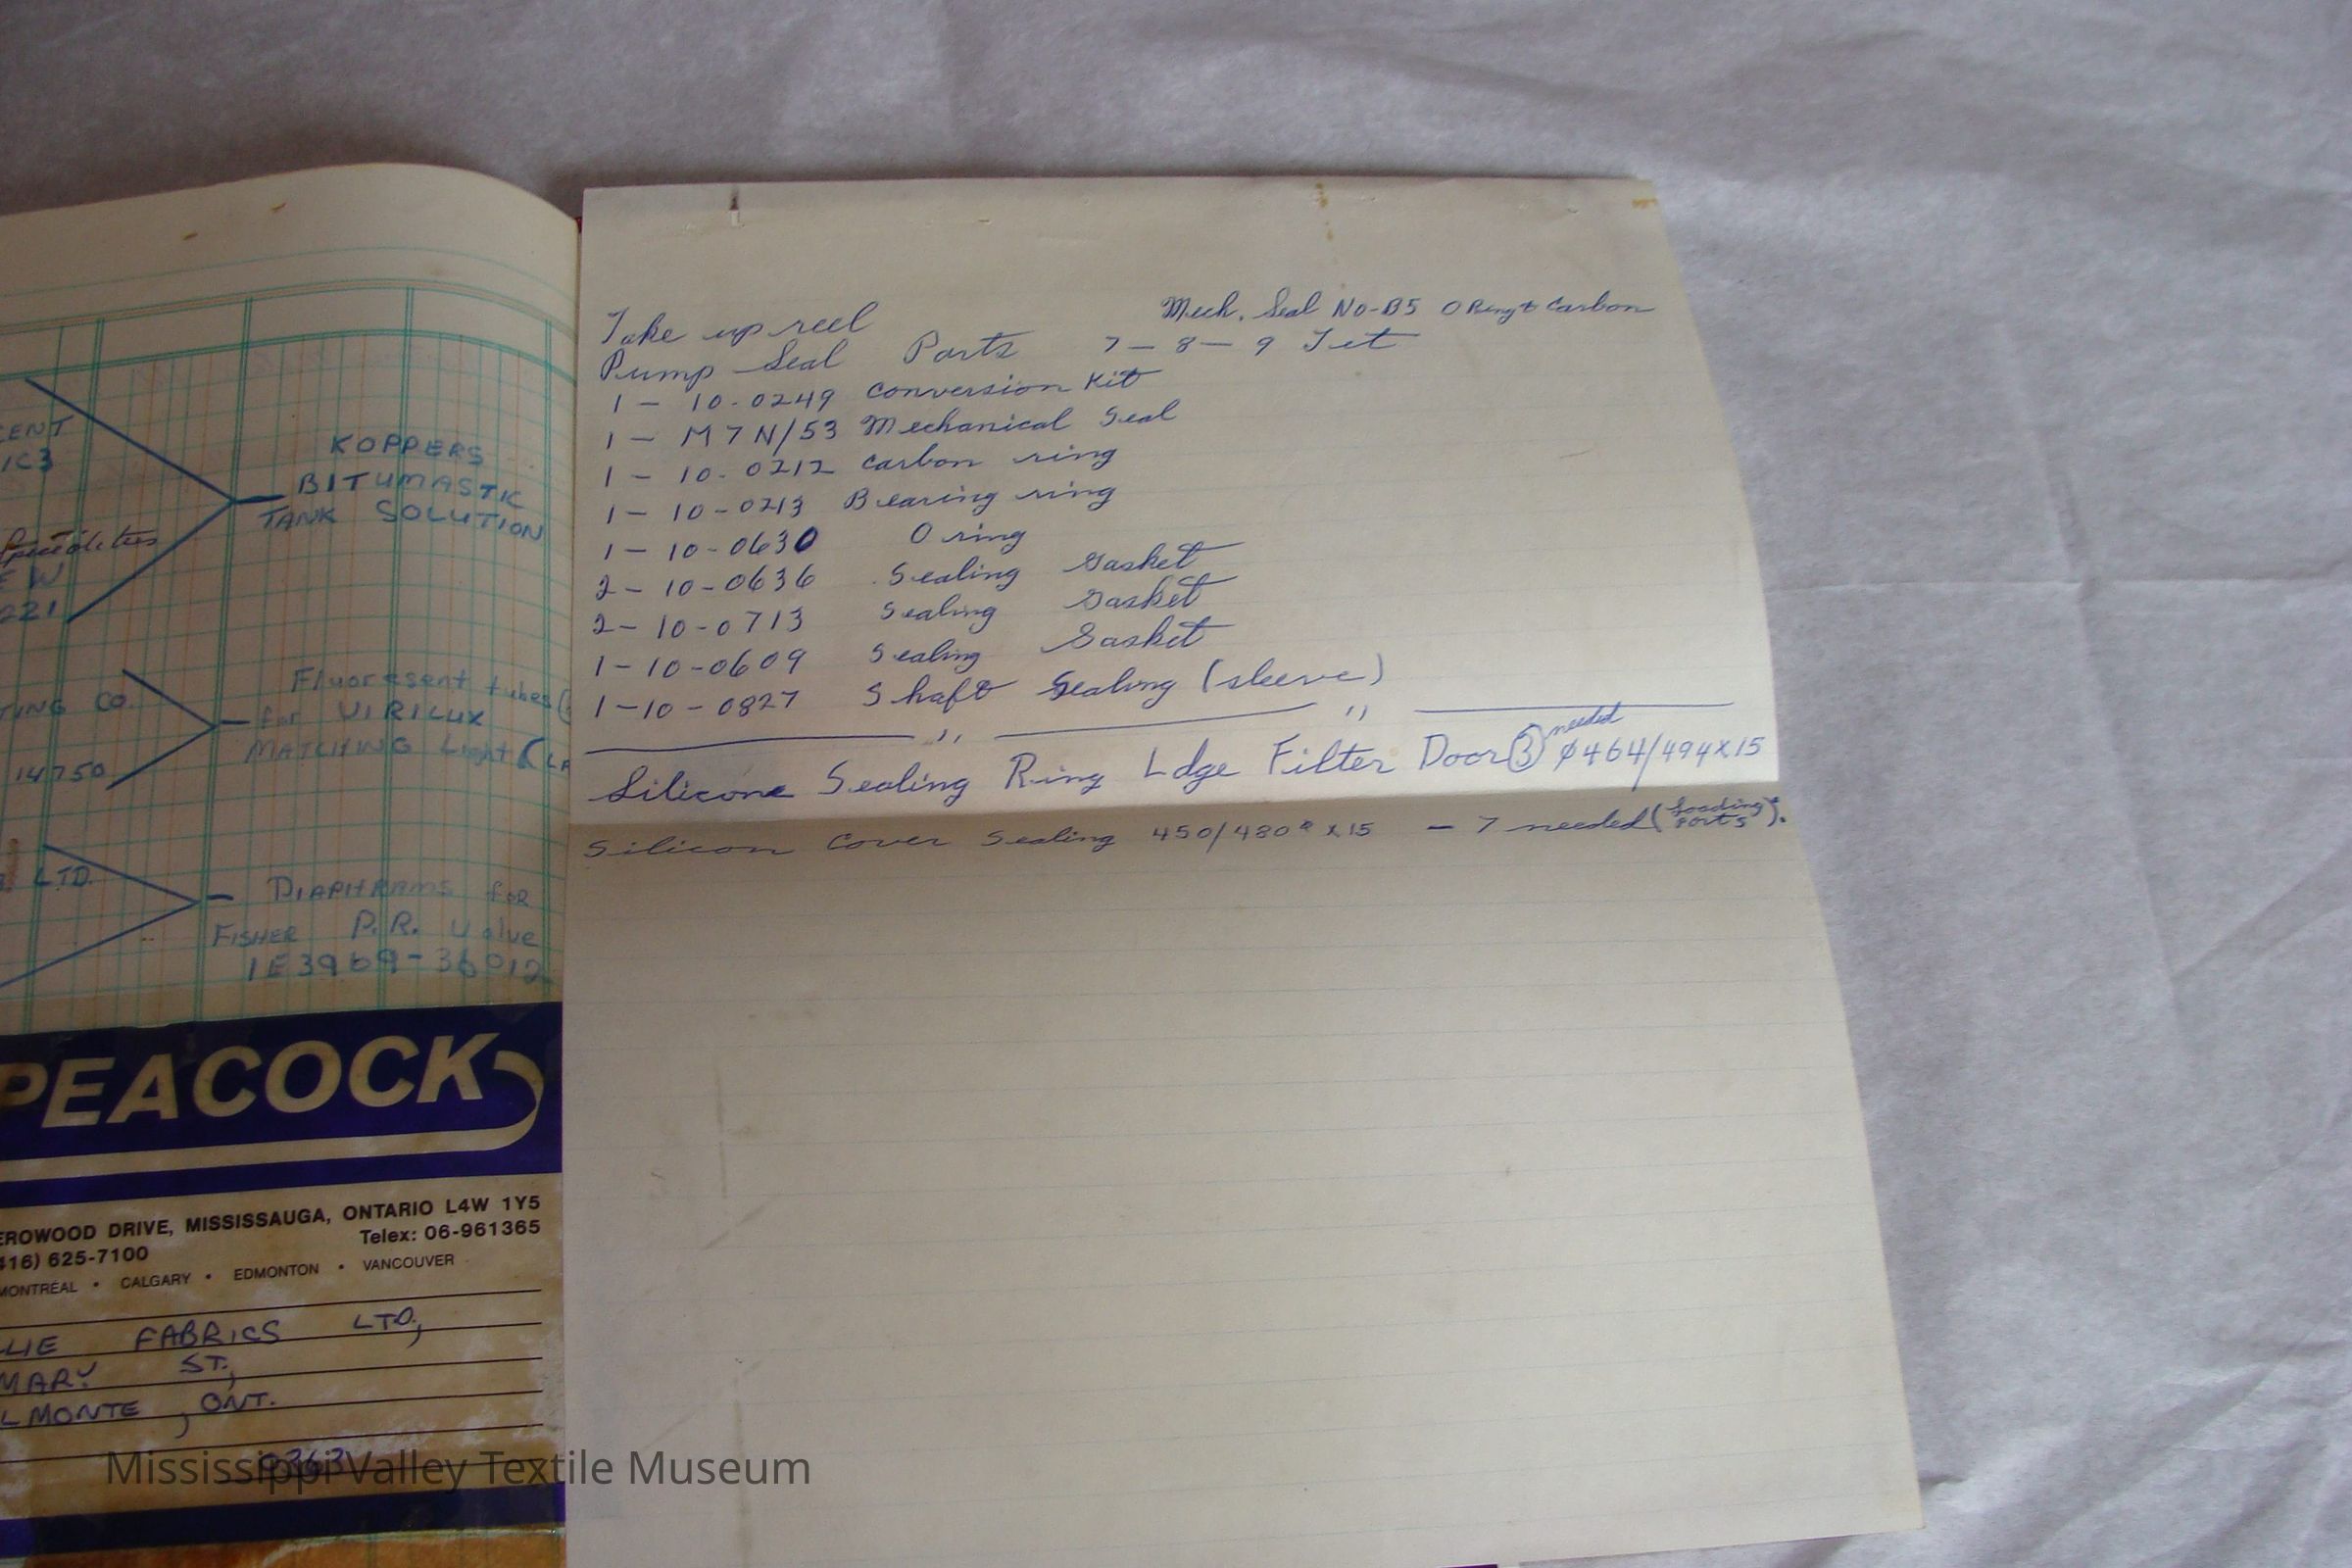 CENT
1C3
KOPPERS
BITUMASTIC
TANK SOLUTION
E W
221
TING CO.
14750
Fluoresent tubes
for VIRILUX
MATCHING Light
LTD.
DIAPHRAMS for
FISHER P.R. Valve
1E3969-36012
PEACOCK
EROWOOD DRIVE, MISSISSAUGA, ONTARIO L4W 1Y5
416) 625-7100 Telex: 06-961365
MONTRÉAL • CALGARY • EDMONTON • VANCOUVER
LLIE FABRICS LTD,
MARY ST,
LMONTE, ONT.
Mech. Seal No-B5 O Ring & Carbon
Take up reel
Pump Seal Parts 7-8-9 Jet
1 - 10-0249 conversion Kit
1 - M7N/53 Mechanical Seal
1 - 10-0212 carbon ring
1 - 10-0213 Bearing ring
1 - 10-0630 O ring
2 - 10-0636 Sealing Gasket
2 - 10-0713 Sealing Gasket
1-10-0609 Sealing Gasket
1-10-0827 Shaft Sealing (sleeve)
Silicone Sealing Ring Ldge Filter Door (3) needed ø464/494x15
Silicon Cover Sealing 450/480 x 15 - 7 needed (Loading Ports).
Mississippi Valley Textile Museum